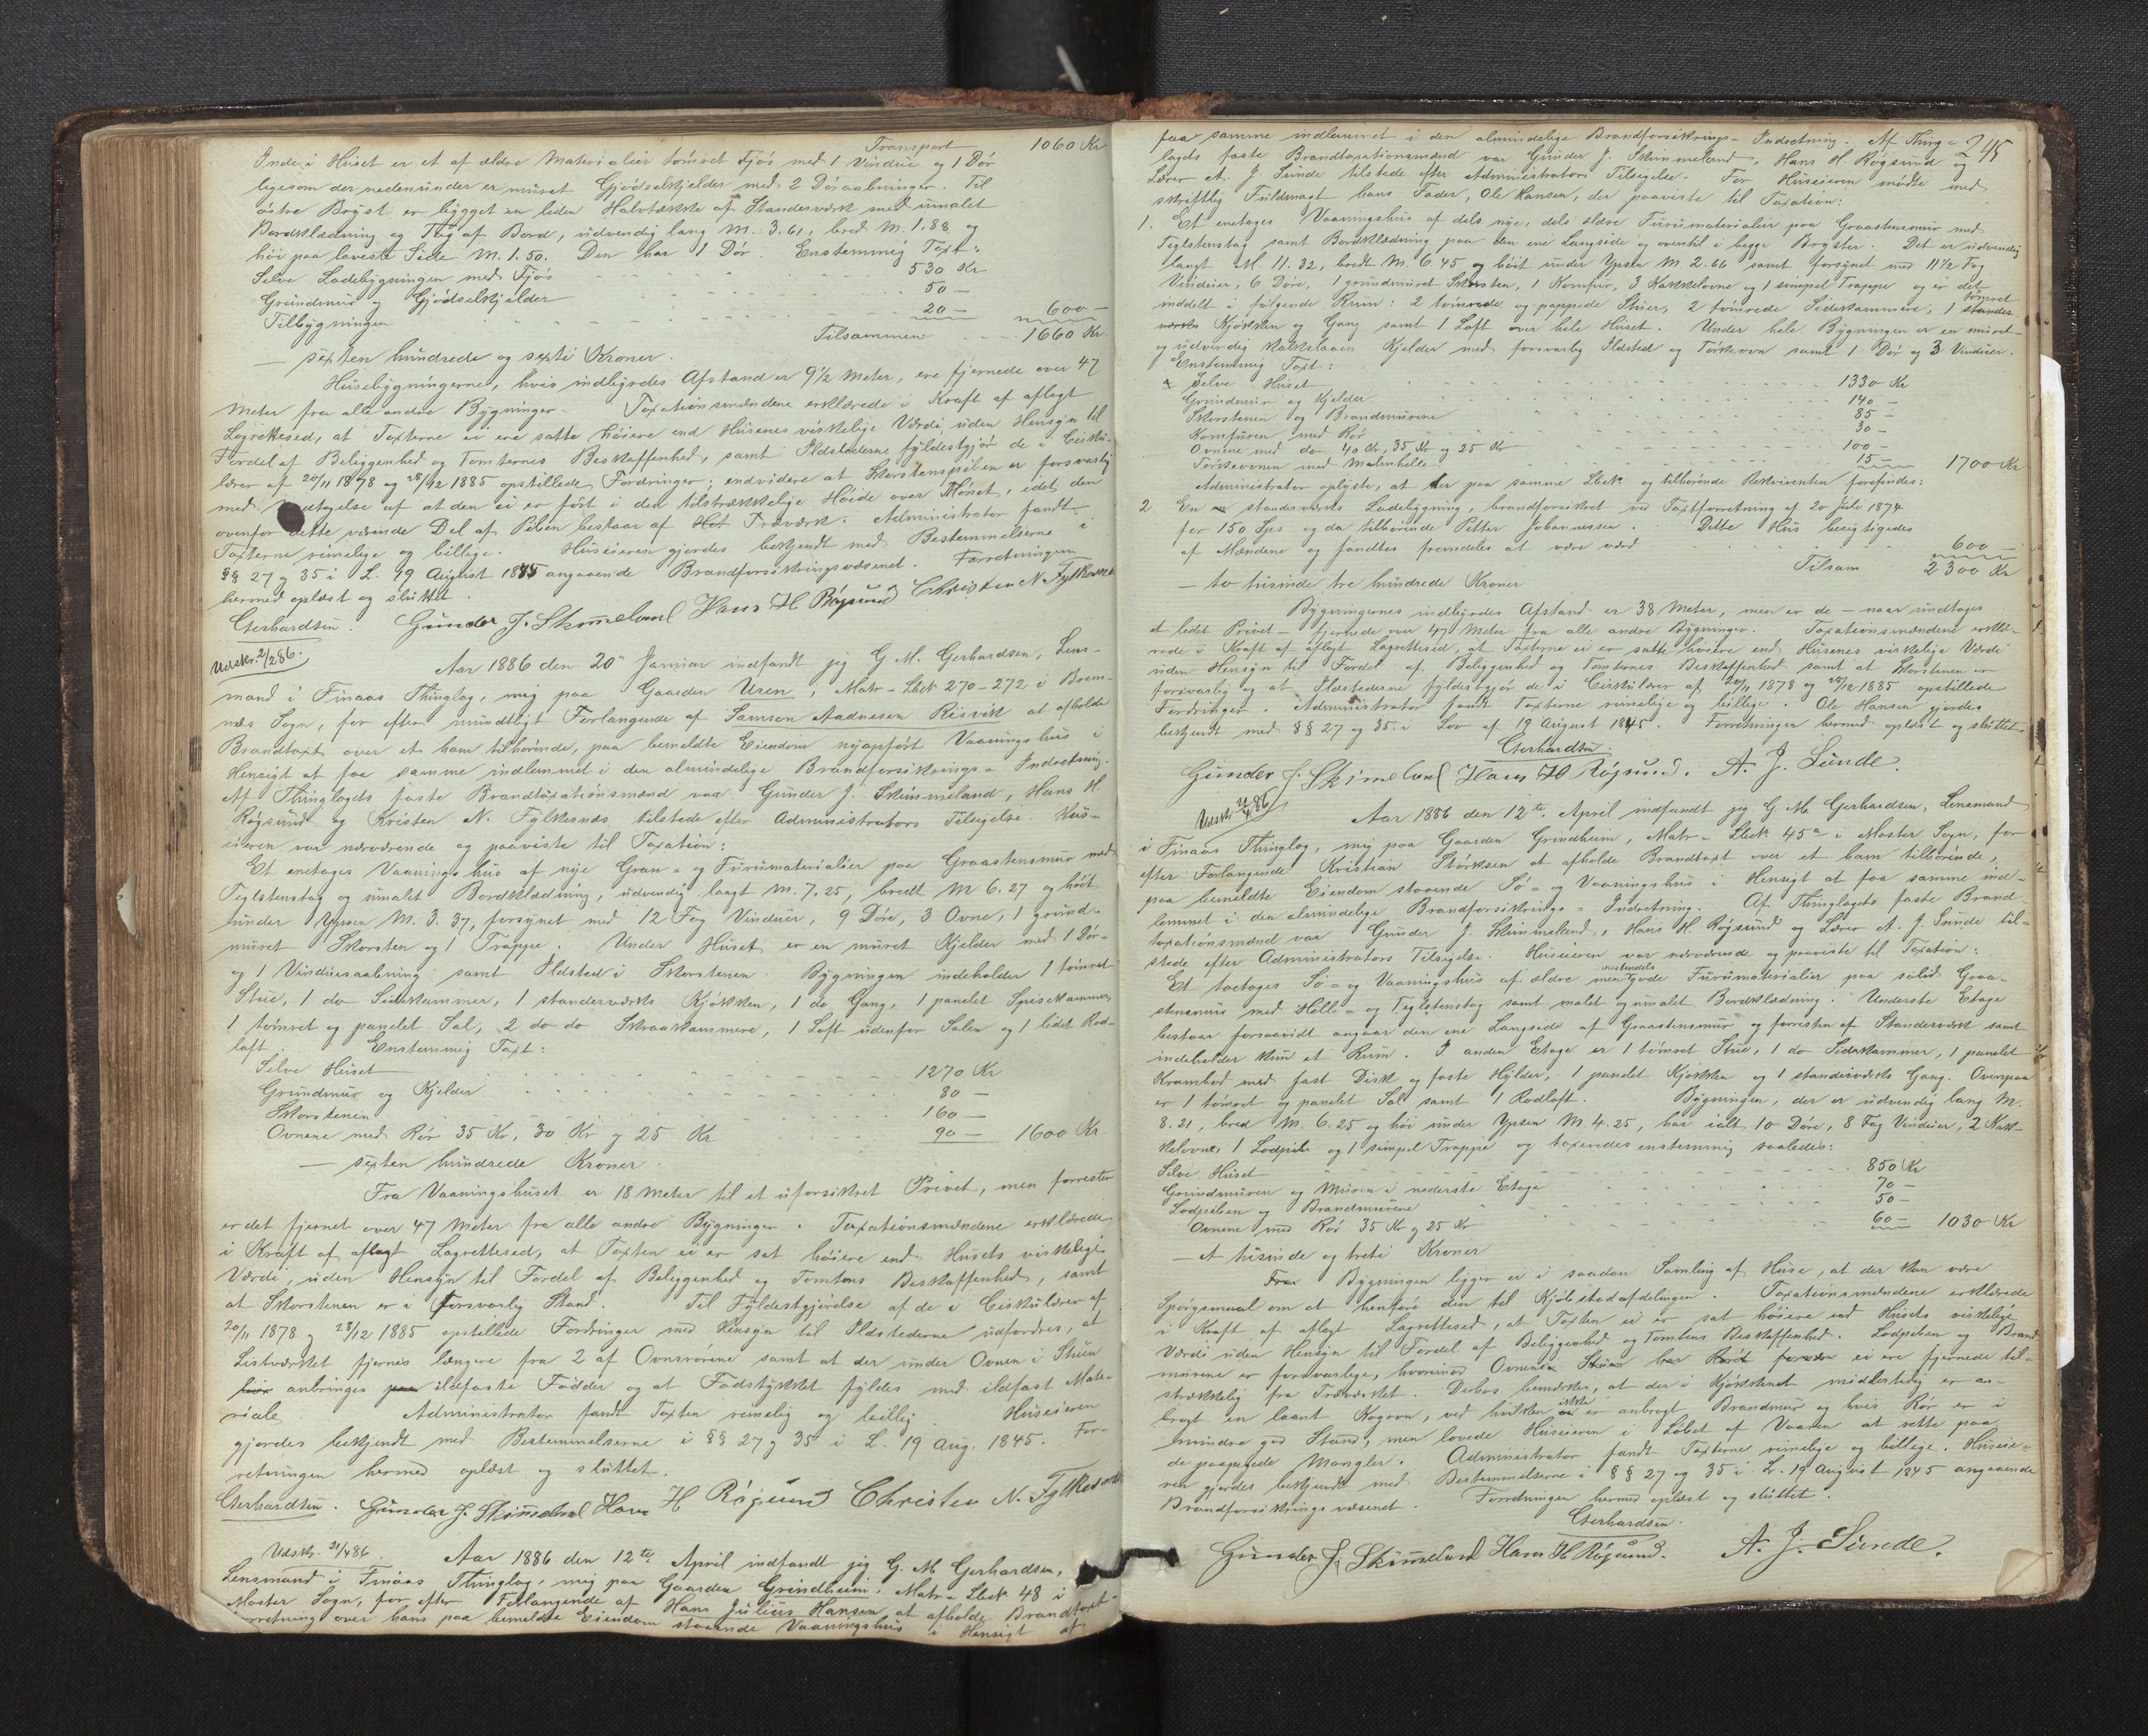 Transport 1060 Kr
Inde i Huset er et af ældre Materialier tømret Fjøs med 1 Vindue og 1 Dør
ligesom der nedenunder er muret Gjødselkjelder med 2 Døraabninger. Til
østre Bryst er bygget en liden Halvtækkt af Standerværk med umalet
Bordklædning og Tag af Bord, udvendig lang M. 3.61, bred M. 1.88 og
høi paa laveste Side M. 1.50. Den har 1 Dør. Enstemmig Taxt:
Selve Ladebygningen med Fjøs 530 Kr
Grundmur og Gjødselkjelder 50 —
Tilbygningen 20 — 600 —
Tilsammen 1660 Kr.
— sexten hundrede og sexti Kroner.
Husebygningerne, hvis indbyrdes Afstand er 9½ Meter, ere fjernede over 47
Meter fra alle andre Bygninger. Taxationsmændene erklærede i Kraft af aflagt
Lagrettesed, at Taxterne ei ere satte høiere end Husenes virkelige Værdi uden Hensyn til
Fordel af Beliggenhed og Tomternes Beskaffenhed, samt Ildstederne fyldestgjør de i Cirku-
lærer af 20/11 1878 og 28/12 1885 opstillede Fordringer; endvidere at Skorstenspiben er forsvarlig
med Undtagelse af at den ei er ført i den tilstrækkelige Høide over Mønet, idet den
ovenfor dette værende Del af Piben bestaar af Træværk. Administrator fandt
Taxterne rimelige og billige. Huseieren gjordes bekjendt med Bestemmelserne i
§§ 27 og 35 i L. 19 August 1845 angaaende Brandforsikringsvæsenet. Forretningen
hermed oplæst og sluttet.
Gerhardsen. Gunder J. Skimmeland Hans H Røgsund Christen N. Fylkesnes
Udskr. 2/2 86.
Aar 1886 den 20de Januar indfandt jeg G. M. Gerhardsen, Lens-
mand i Finaas Thinglag, mig paa Gaarden Uren, Matr-Løbe No 270-272 i Brem-
næs Sogn, for efter mundtligt Forlangende af Samson Aadnesen Risvik at afholde
Brandtaxt over et ham tilhørende, paa bemeldte Eiendom nyopført Vaaningshus i
Hensigt at faa samme indlemmet i den almindelige Brandforsikrings-Indretning.
Af Thinglagets faste Brandtaxationsmænd var Gunder J. Skimmeland, Hans H.
Røgsund og Kristen N. Fylkesnæs tilstede efter Administrators Tilsigelse. Hus-
eieren var nærværende og paaviste til Taxation:
Et enetages Vaaningshus af nye Gran- og Furumaterialier paa Graastensmur med
Teglstenstag og umalet Bordklædning, udvendig langt M. 7.25, bredt M 6.27 og høit
under Ypsen M. 3.37, forsynet med 12 Fag Vinduer, 9 Døre, 3 Ovne, 1 grund-
muret Skorsten og 1 Trappe. Under Huset er en muret Kjelder med 1 Dør-
og 1 Vinduesaabning samt Ildsted i Skorstenen. Bygningen indeholder 1 tømret
Stue, 1 do Sidekammer, 1 standerværks Kjøkken, 1 do Gang, 1 panelet Spisekammer,
1 tømret og panelet Sal, 2 do do Skraakammere, 1 Loft udenfor Salen og 1 lidet Rod-
loft. Enstemmig Taxt:
Selve Huset 1270 Kr
Grundmur og Kjelder 80 —
Skorstenen 160 —
Ovnene med Rør 35 Kr, 30 Kr og 25 Kr 90 — 1600 Kr.
— sexten hundrede Kroner.
Fra Vaaningshuset er 18 Meter til et uforsikret Privet, men forresten
er det fjernet over 47 Meter fra alle andre Bygninger. Taxationsmændene erklærede
i Kraft af aflagt Lagrettesed, at Taxten ei er sat høiere end Husets virkelige
Værdi, uden Hensyn til Fordel af Beliggenhed og Tomtens Beskaffenhed, samt
at Skorstenen er i forsvarlig Stand. Til Fyldestgjørelse af de i Cirkulærer af
20/11 1878 og 28/12 1885 opstillede Fordringer med Hensyn til Ildstederne udfordres, at
Listværket fjernes længere fra 2 af Ovnsrørene samt at der under Ovnen i Stuen
anbringes ildfaste Fødder og at Fodstykket fyldes med ildfast Mate-
riale. Administrator fandt Taxten rimelig og billig. Huseieren
gjordes bekjendt med Bestemmelserne i §§ 27 og 35 i L. 19 Aug. 1845. For-
retningen hermed oplæst og sluttet.
Gerhardsen. Gunder J. Skimmeland Hans H Røgsund Christen N. Fylkesnes
Udskr. 21/4 86.
Aar 1886 den 12te April indfandt jeg G. M Gerhardsen,
Lensmand i Finaas Thinglag, mig paa Gaarden Grindheim, Matr-Løbe No 48 i
Moster Sogn, for efter Forlangende af Hans Julius Hansen at afholde Brandtaxt-
forretning over hans paa bemeldte Eiendom staaende Vaaningshus i Hensigt at
245
faa samme indlemmet i den almindelige Brandforsikrings-Indretning. Af Thing-
lagets faste Brandtaxationsmænd var Gunder J. Skimmeland, Hans H. Røgsund og
Lærer A. J. Sunde tilstede efter Administrators Tilsigelse. For Huseieren mødte med
skriftlig Fuldmagt hans Fader, Ole Hansen, der paaviste til Taxation:
1. Et enetages Vaaningshus af dels nye, dels ældre Furumaterialier paa Graastensmur med
Teglstenstag samt Bordklædning paa den ene Langside og oventil i begge Bryster. Det er udvendig
langt M. 11.32, bredt M. 6.45 og høit under Ypsen M. 2.66 samt forsynet med 11½ Fag
Vinduer, 6 Døre, 1 grundmuret Skorsten, 1 Komfur, 3 Kakkelovne og 1 simpel Trappe og er det
inddelt i følgende Rum: 2 tømrede og pappede Stuer, 2 tømrede Sidekammere, 1 tømret stander-
værks Kjøkken og Gang samt 1 Loft over hele Huset. Under hele Bygningen er en muret
og udvendig kalkslaaen Kjelder med forsvarlig Ildsted og Tørkeovn samt 1 Dør og 3 Vinduer.
Enstemmig Taxt:
Selve Huset 1330 Kr
Grundmur og Kjelder 140 —
Skorstenen og Brandmurene 85 —
Komfuren med Rør 30 —
Ovnene med do 40 Kr, 35 Kr og 25 Kr 100 —
Tørkeovnen med Malmhelle 15 — 1700 Kr
Administrator oplyste, at der paa samme Løbe No tilhørende Rekvirenten forefindes:
2. En standerværks Ladebygning, brandforsikret ved Taxtforretning af 20 Juli 1874
for 150 Sps og da tilhørende Petter Johannessen. Dette Hus besigtigedes
af Mændene og fandtes fremdeles at være værd 600 —
Tilsam 2300 Kr
— to tusinde tre hundrede Kroner
Bygningernes indbyrdes Afstand er 38 Meter, men er de — naar undtages
et lidet Privet — fjernede over 47 Meter fra alle andre Bygninger. Taxationsmændene erklæ-
rede i Kraft af aflagt Lagrettesed, at Taxterne ei er satte høiere end Husenes virkelige Værdi
uden Hensyn til Fordel af Beliggenhed og Tomternes Beskaffenhed samt at Skorstenen er
forsvarlig og at Ildstederne fyldestgjør de i Cirkulærer af 20/11 1878 og 28/12 1885 opstillede
Fordringer. Administrator fandt Taxterne rimelige og billige. Ole Hansen gjordes
bekjendt med §§ 27 og 35 i Lov af 19 August 1845. Forretningen hermed oplæst og sluttet.
Gerhardsen.
Gunder J. Skimmeland Hans H Røgsund. A. J. Sunde.
Udskr. 21/4 86
Aar 1886 den 12te April indfandt jeg G. M. Gerhardsen, Lensmand
i Finaas Thinglag, mig paa Gaarden Grindheim, Matr-Løbe No 45a i Moster Sogn, for
efter Forlangende Kristian Størksen at afholde Brandtaxt over et ham tilhørende,
paa bemeldte Eiendom staaende Sø- og Vaaningshus i Hensigt at faa samme ind-
lemmet i den almindelige Brandforsikrings-Indretning. Af Thinglagets faste Brand-
taxationsmænd var Gunder J. Skimmeland, Hans H Røgsund og Lærer A. J. Sunde til-
stede efter Administrators Tilsigelse. Huseieren var nærværende og paaviste til Taxation:
Et toetages Sø- og Vaaningshus af ældre men mestendels gode Furumaterialier paa solid Graa-
stensmur med Helle- og Teglstenstag samt malet og umalet Bordklædning. Underste Etage
bestaar forsaavidt angaar den ene Langside af Graastensmur og forresten af Standerværk samt
indeholder kun et Rum. I anden Etage er 1 tømret Stue, 1 do Sidekammer, 1 panelet
Krambod med fast Disk og faste Hylder, 1 panelet Kjøkken og 1 standerværks Gang. Ovenpaa
er 1 tømret og panelet Sal samt 1 Rodloft. Bygningen, der er udvendig lang M.
8.21, bred M. 6.25 og høi under Ypsen M. 4.25, har ialt 10 Døre, 8 Fag Vinduer, 2 Kak-
kelovne, 1 Lodpibe og 1 simpel Trappe og taxeredes enstemmig saaledes:
Selve Huset 850 Kr
Grundmuren og Muren i nederste Etage 70 —
Lodpiben og Brandmurene 50 —
Ovnene med Rør 35 Kr og 25 Kr 60 — 1030 Kr
— et tusinde og treti Kroner
Fra Bygningen ligger ei i saadan Samling af Huse, at der kan være
Spørgsmaal om at henføre den til Kjøbstedafdelingen. Taxationsmændene erklærede
i Kraft af aflagt Lagrettesed, at Taxten ei er sat høiere end Husets virkelige
Værdi uden Hensyn til Fordel af Beliggenhed og Tomtens Beskaffenhed. Lodpiben og Brand-
murene er forsvarlige, hvorimod Ovnene ei ere fjernede til-
strækkelig fra Træværket. Derhos bemærkes, at der i Kjøkkenet midlertidig er an-
bragt en laant Kogovn, ved hvilken ikke er anbragt Brandmur og hvis Rør er i
mindre god Stand, men lovede Huseieren i Løbet af Vaaren at rette paa
de paapegede Mangler. Administrator fandt Taxterne rimelige og billige. Huseie-
ren gjordes bekjendt med Bestemmelserne i §§ 27 og 35 i L. 19 August 1845 angaaende
Brandforsikringsvæsenet. Forretningen hermed oplæst og sluttet.
Gerhardsen.
Gunder J. Skimmeland Hans H Røgsund. A. J. Sunde.